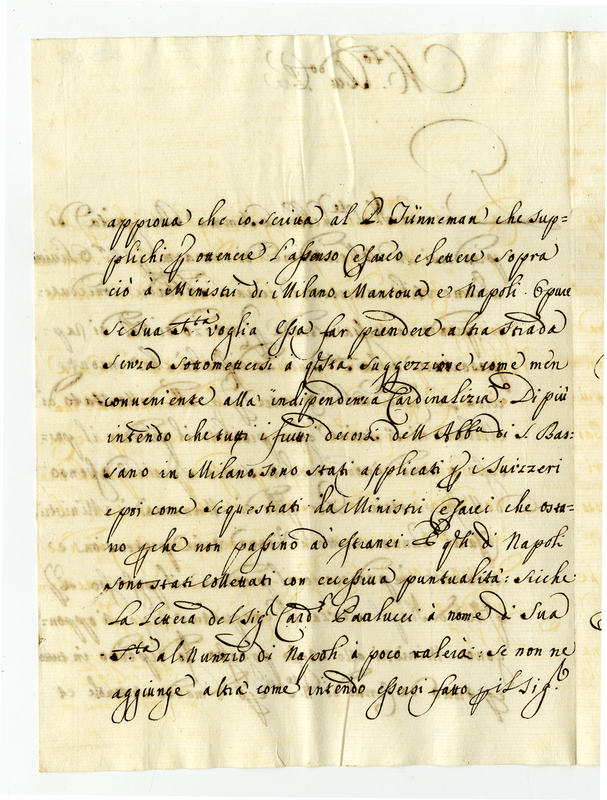 approva che io scriva al P. Tünneman che sup=
plichi p ottenere l'assenso Cesareo e lettere sopra
ciò à Ministri di Milano, Mantova e Napoli. O pure
se Sua S.tà voglia essa far prendere altra strada
senza sottomettersi à qsta suggezzione come men
conveniente alla indipendenza Cardinalizia. Di più
intendo che tutti i frutti decorsi dell'Abb.a di S. Bas=
sano in Milano, sono stati applicati p i Suizzeri
e poi come sequestrati da Ministri Cesarei che osta=
no pche non passino ad estranei. E qsti di Napoli
sono stati Collettati con eccessiva puntualità: Sicche
la lettera del Sig.r Card.l Paulucci à nome di Sua
S.tà al Nunzio di Napoli à poco valerà: Se non ne
aggiunge altra come intendo essersi fatto p il Sig.r